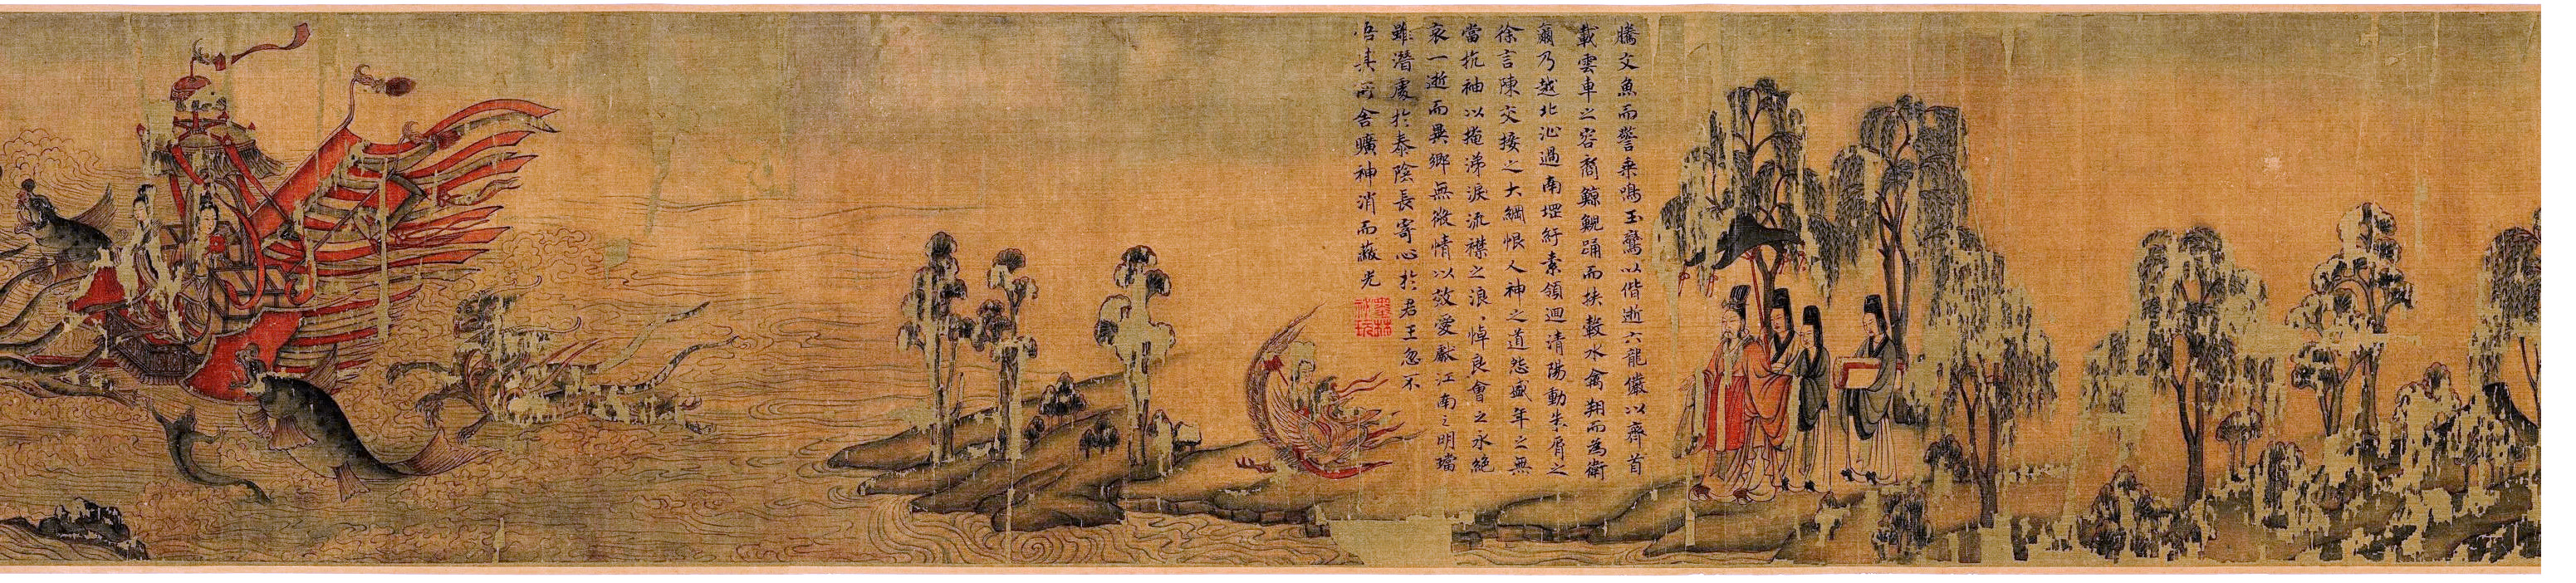 騰文魚而警乘鳴玉鸞以偕逝六龍儼以齊首
載雲車之容裔鯨鯢踊而挾轂水禽翔而為衛
爾乃越北沚過南堽紆素領迴清陽動朱脣之
徐言陳交接之大綱恨人神之道怨盛年之無
當抗袖以掩涕淚流襟之浪〻悼良會之永絕
哀一逝而異鄉無微情以效愛獻江南之明璫
雖潛處於泰陰長寄心於君王忽不
悟其所舍曠神消而蔽光
墨林
祕玩